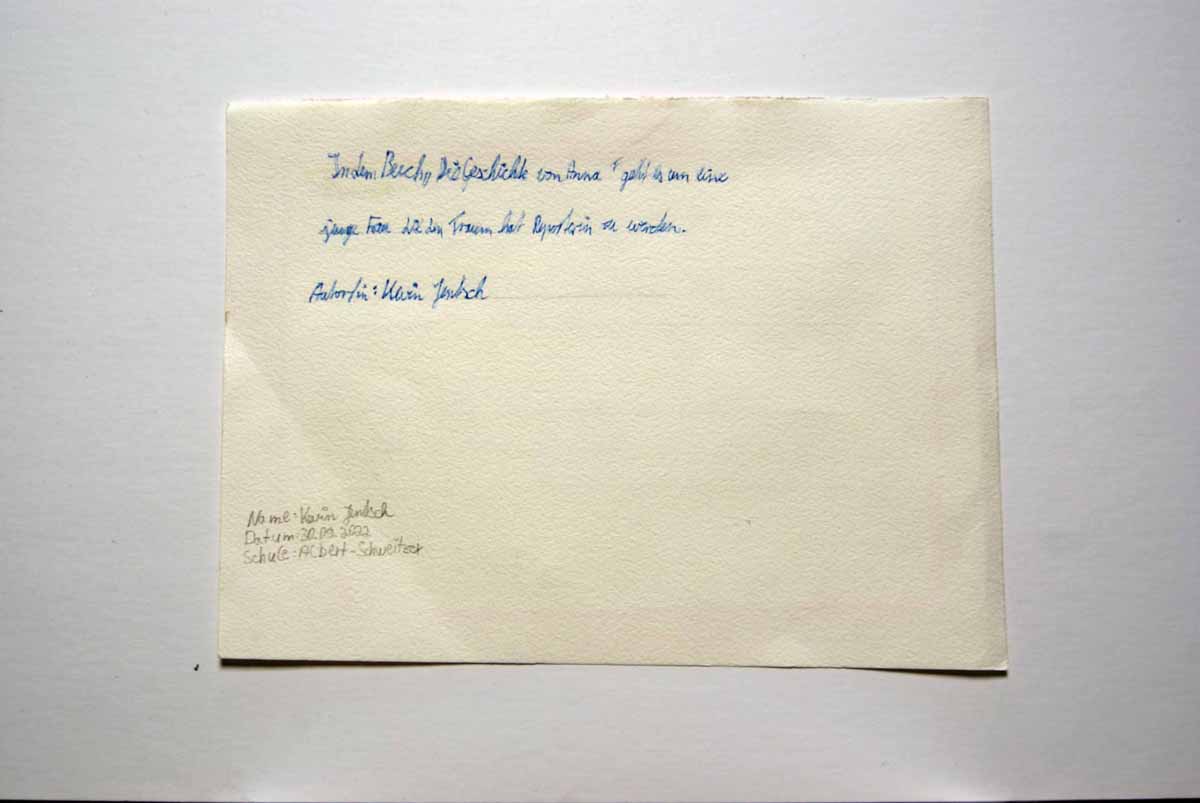 In dem Buch „Die Geschichte von Anna" geht es um eine
junge Frau die den Traum hat Reporterin zu werden.
Autor/in: Karin Jentsch
Name: Karin Jentsch
Datum: 30.09.2022
Schule: Albert-Schweitzer